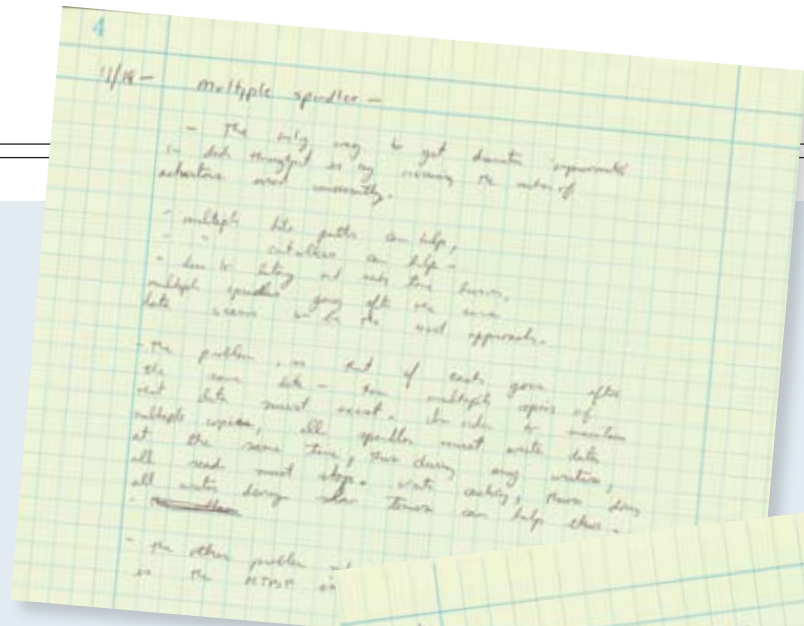 4
11/18 - Multiple spindles -
- The only way to get dramatic improvements
in disk throughput is by increasing the number of
actuators used concurrently.
- multiple data paths can help,
- " controllers can help -
- due to latency and seek time,
multiple spindles going after the same
data seems to be the approach.
- The problem is that if each goes after
the same data - then multiple copies of
that data must exist. In order to maintain
multiple copies, all spindles must write data
at the same time, thus during any writes,
all reads must stop. write caching, then doing
all writes during slow times can help this.
- the other problem
is the MTBF